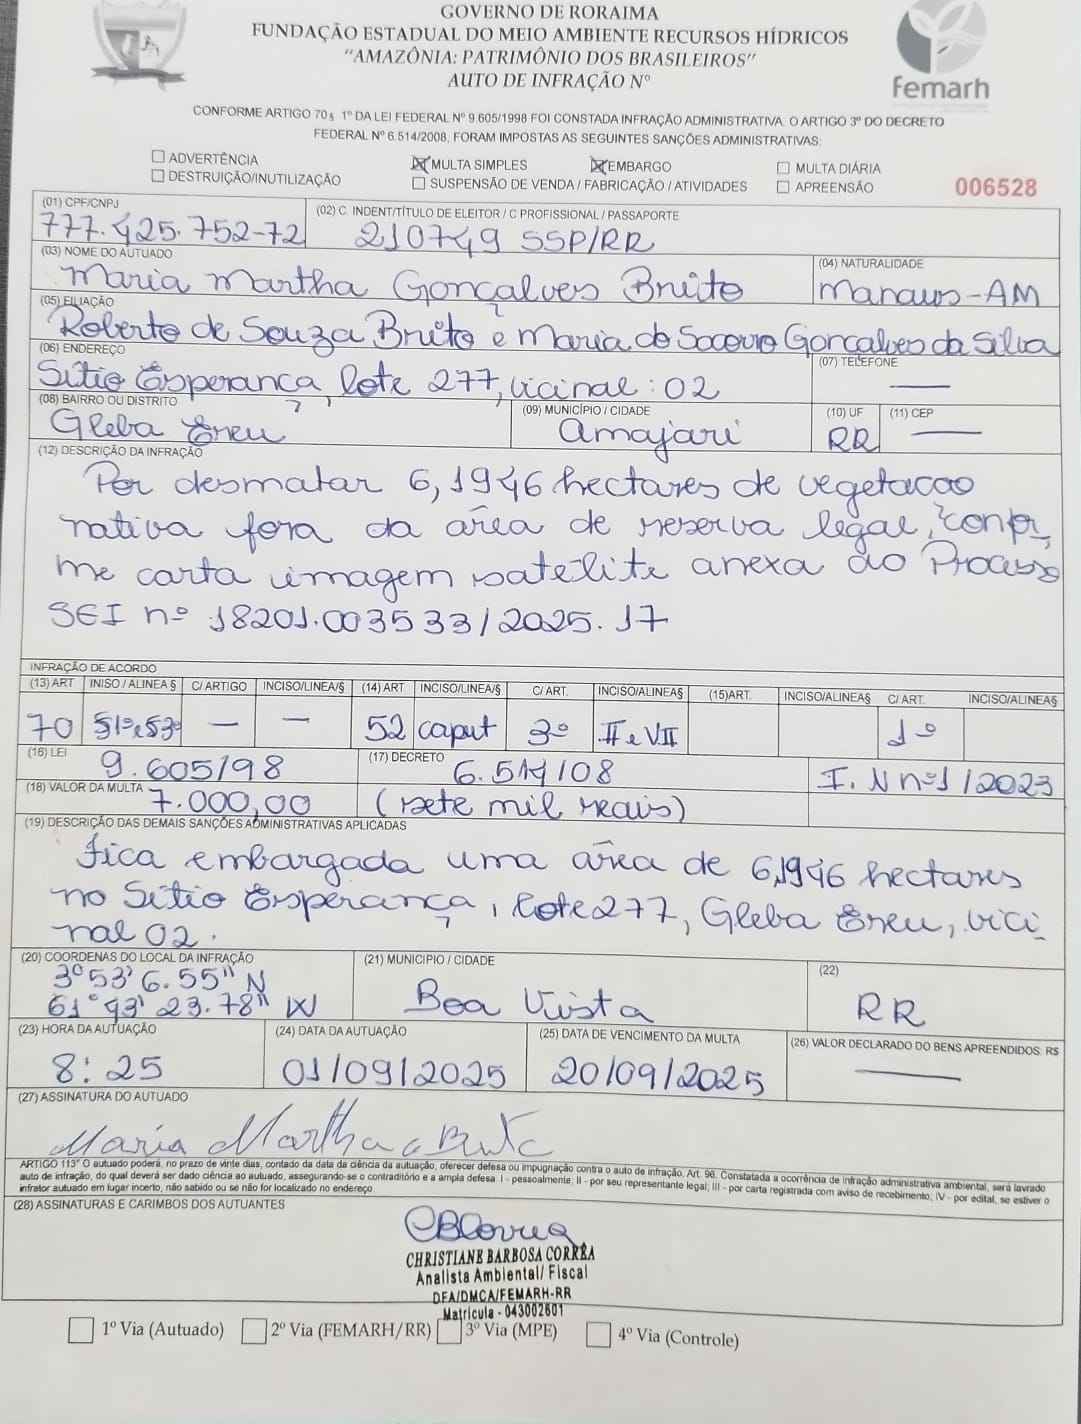 GOVERNO DE RORAIMA
FUNDAÇÃO ESTADUAL DO MEIO AMBIENTE RECURSOS HÍDRICOS
"AMAZÔNIA: PATRIMÔNIO DOS BRASILEIROS"
AUTO DE INFRAÇÃO Nº
Femarh
CONFORME ARTIGO 70 § 1º DA LEI FEDERAL Nº 9.605/1998 FOI CONSTADA INFRAÇÃO ADMINISTRATIVA. O ARTIGO 3º DO DECRETO
FEDERAL Nº 6.514/2008, FORAM IMPOSTAS AS SEGUINTES SANÇÕES ADMINISTRATIVAS:
ADVERTÊNCIA MULTA SIMPLES EMBARGO MULTA DIÁRIA
DESTRUIÇÃO/INUTILIZAÇÃO SUSPENSÃO DE VENDA / FABRICAÇÃO / ATIVIDADES APREENSÃO 006528
(01) CPF/CNPJ (02) C. INDENT/TÍTULO DE ELEITOR / C PROFISSIONAL / PASSAPORTE
777.425.752-72 210749 SSP/RR
(03) NOME DO AUTUADO (04) NATURALIDADE
Maria Martha Gonçalves Brito Manaus-AM
(05) FILIAÇÃO
Roberto de Souza Brito e Maria do Socorro Gonçalves da Silva
(06) ENDEREÇO (07) TELEFONE
Sítio Esperança, lote 277, vicinal: 02 —
(08) BAIRRO OU DISTRITO (09) MUNICÍPIO / CIDADE (10) UF (11) CEP
Gleba Ereu Amajari RR —
(12) DESCRIÇÃO DA INFRAÇÃO
Por desmatar 6,1946 hectares de vegetacao
nativa fora da área de reserva legal, confor
me carta imagem satélite anexa ao Processo
SEI nº 18201.003533/2025.17
INFRAÇÃO DE ACORDO
(13) ART INISO / ALINEA § C/ ARTIGO INCISO/LINEA/§ (14) ART INCISO/LINEA/§ C/ ART. INCISO/ALINEA§ (15)ART. INCISO/ALINEA§ C/ ART. INCISO/ALINEA§
70 §1º e §3º — — 52 caput 3º II e VII 1º
(16) LEI (17) DECRETO
9.605/98 6.514/08 I. N nº 1/2023
(18) VALOR DA MULTA
7.000,00 (sete mil reais)
(19) DESCRIÇÃO DAS DEMAIS SANÇÕES ADMINISTRATIVAS APLICADAS
Fica embargada uma área de 6,1946 hectares
no Sítio Esperança, lote 277, Gleba Ereu, vici
nal 02.
(20) COORDENAS DO LOCAL DA INFRAÇÃO (21) MUNICIPIO / CIDADE (22)
3º53'6.55" N
61º43'23.78" W Boa Vista RR
(23) HORA DA AUTUAÇÃO (24) DATA DA AUTUAÇÃO (25) DATA DE VENCIMENTO DA MULTA (26) VALOR DECLARADO DO BENS APREENDIDOS: R$
8:25 01/09/2025 20/09/2025 —
(27) ASSINATURA DO AUTUADO
Maria Martha G Brito
ARTIGO 113º O autuado poderá, no prazo de vinte dias, contado da data da ciência da autuação, oferecer defesa ou impugnação contra o auto de infração. Art. 96. Constatada a ocorrência de infração administrativa ambiental, será lavrado
auto de infração, do qual deverá ser dado ciência ao autuado, assegurando-se o contraditório e a ampla defesa. I - pessoalmente; II - por seu representante legal; III - por carta registrada com aviso de recebimento; IV - por edital, se estiver o
infrator autuado em lugar incerto, não sabido ou se não for localizado no endereço.
(28) ASSINATURAS E CARIMBOS DOS AUTUANTES
CBCorrêa
CHRISTIANE BARBOSA CORRÊA
Analista Ambiental/ Fiscal
DFA/DMCA/FEMARH-RR
Matrícula - 043002601
1º Via (Autuado) 2º Via (FEMARH/RR) 3º Via (MPE) 4º Via (Controle)